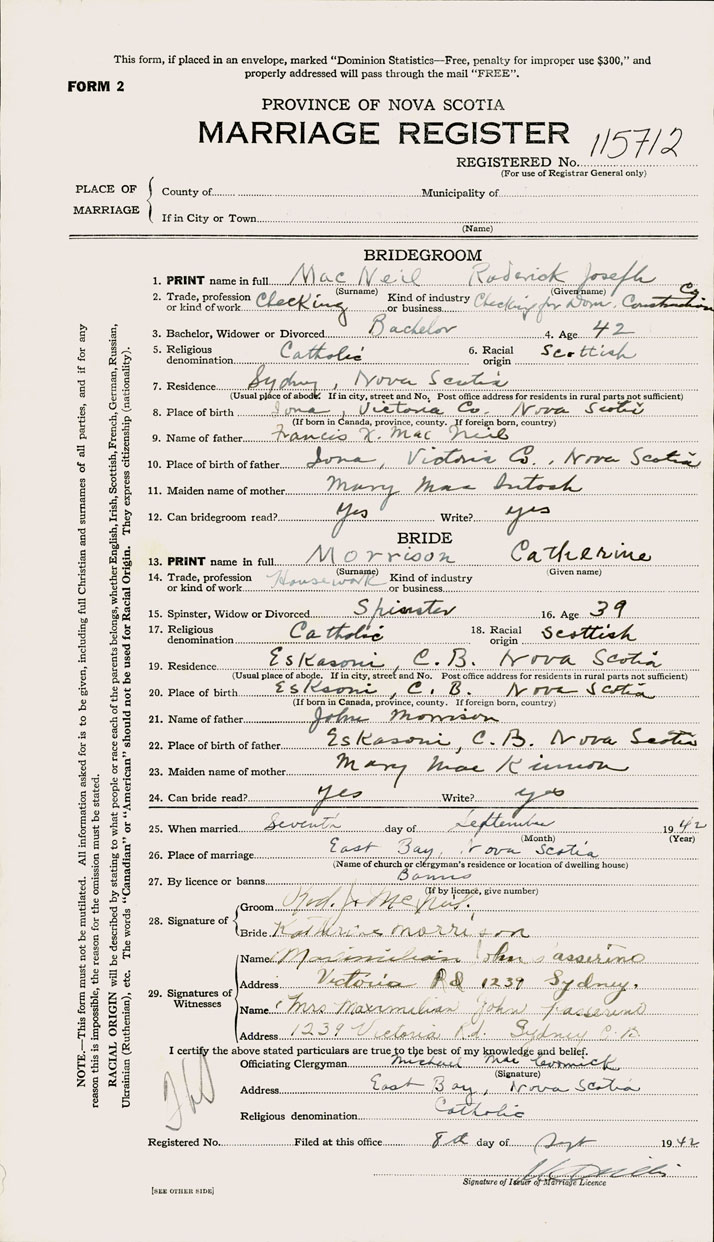 This form, if placed in an envelope, marked "Dominion Statistics—Free, penalty for improper use $300," and
properly addressed will pass through the mail "FREE".
FORM 2
PROVINCE OF NOVA SCOTIA
MARRIAGE REGISTER
REGISTERED No. 115712
(For use of Registrar General only)
PLACE OF MARRIAGE
County of Municipality of
If in City or Town
(Name)
BRIDEGROOM
1. PRINT name in full Mac Neil Roderick Joseph
(Surname) (Given name)
2. Trade, profession or kind of work Checking Kind of industry or business Checking for Dom. Construction Co
3. Bachelor, Widower or Divorced Bachelor 4. Age 42
5. Religious denomination Catholic 6. Racial origin Scottish
7. Residence Sydney, Nova Scotia
(Usual place of abode. If in city, street and No. Post office address for residents in rural parts not sufficient)
8. Place of birth Iona, Victoria Co. Nova Scotia
(If born in Canada, province, county. If foreign born, country)
9. Name of father Francis X. Mac Neil
10. Place of father Iona, Victoria Co., Nova Scotia
11. Maiden name of mother Mary Mac Intosh
12. Can bridegroom read? Yes Write? yes
BRIDE
13. PRINT name in full Morrison Catherine
(Surname) (Given name)
14. Trade, profession or kind of work Housework Kind of industry or business
15. Spinster, Widow or Divorced Spinster 16. Age 39
17. Religious denomination Catholic 18. Racial origin Scottish
19. Residence Eskasoni, C.B. Nova Scotia
(Usual place of abode. If in city, street and No. Post office address for residents in rural parts not sufficient)
20. Place of birth Esksoni, C.B. Nova Scotia
(If born in Canada, province, county. If foreign born, country)
21. Name of father John Morrison
22. Place of birth of father Eskasoni, C.B. Nova Scotia
23. Maiden name of mother Mary Mac Kinnon
24. Can bride read? yes Write? yes
25. When married Seventh day of September 1942
(Month) (Year)
26. Place of marriage East Bay, Nova Scotia
(Name of church or clergyman's residence or location of dwelling house)
27. By licence or banns Banns
(If by licence, give number)
28. Signature of
Groom Rod. J. McNeil
Bride Katherine Morrison
29. Signatures of Witnesses
Name Maximilian John Passerino
Address Victoria Rd 1239 Sydney.
Name Mrs Maximilian John Passerino
Address 1239 Victoria Rd. Sydney C.B.
I certify the above stated particulars are true to the best of my knowledge and belief.
Officiating Clergyman Michael Mac Cormick
(Signature)
Address East Bay, Nova Scotia
Religious denomination Catholic
Registered No. Filed at this office 8th day of Sept 1942
Signature of Issuer of Marriage Licence
[SEE OTHER SIDE]
NOTE.—This form must not be mutilated. All information asked for is to be given, including full Christian and surnames of all parties, and if for any
reason this is impossible, the reason for the omission must be stated.
RACIAL ORIGIN will be described by stating to what people or race each of the parents belongs, whether English, Irish, Scottish, French, German, Russian,
Ukrainian (Ruthenian), etc. The words "Canadian" or "American" should not be used for Racial Origin. They express citizenship (nationality).